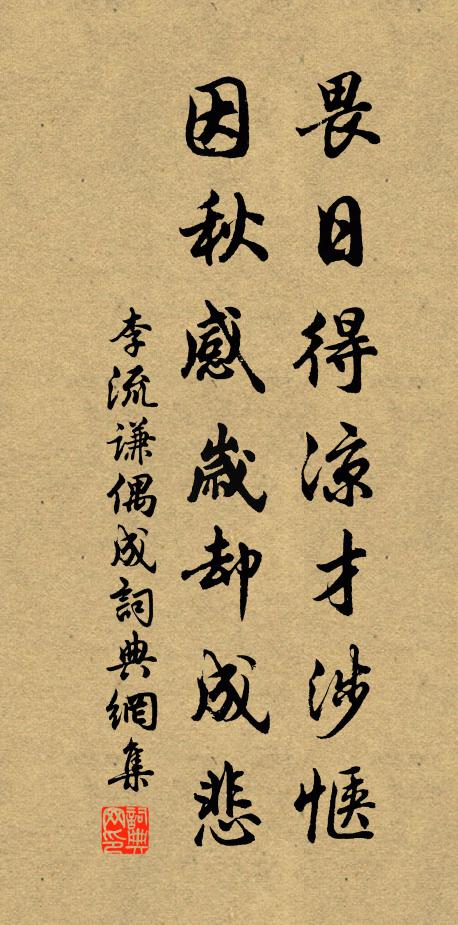 畏日得涼才涉愜
因秋感歲却成悲
李流謙偶成詞典網集
詞典網印